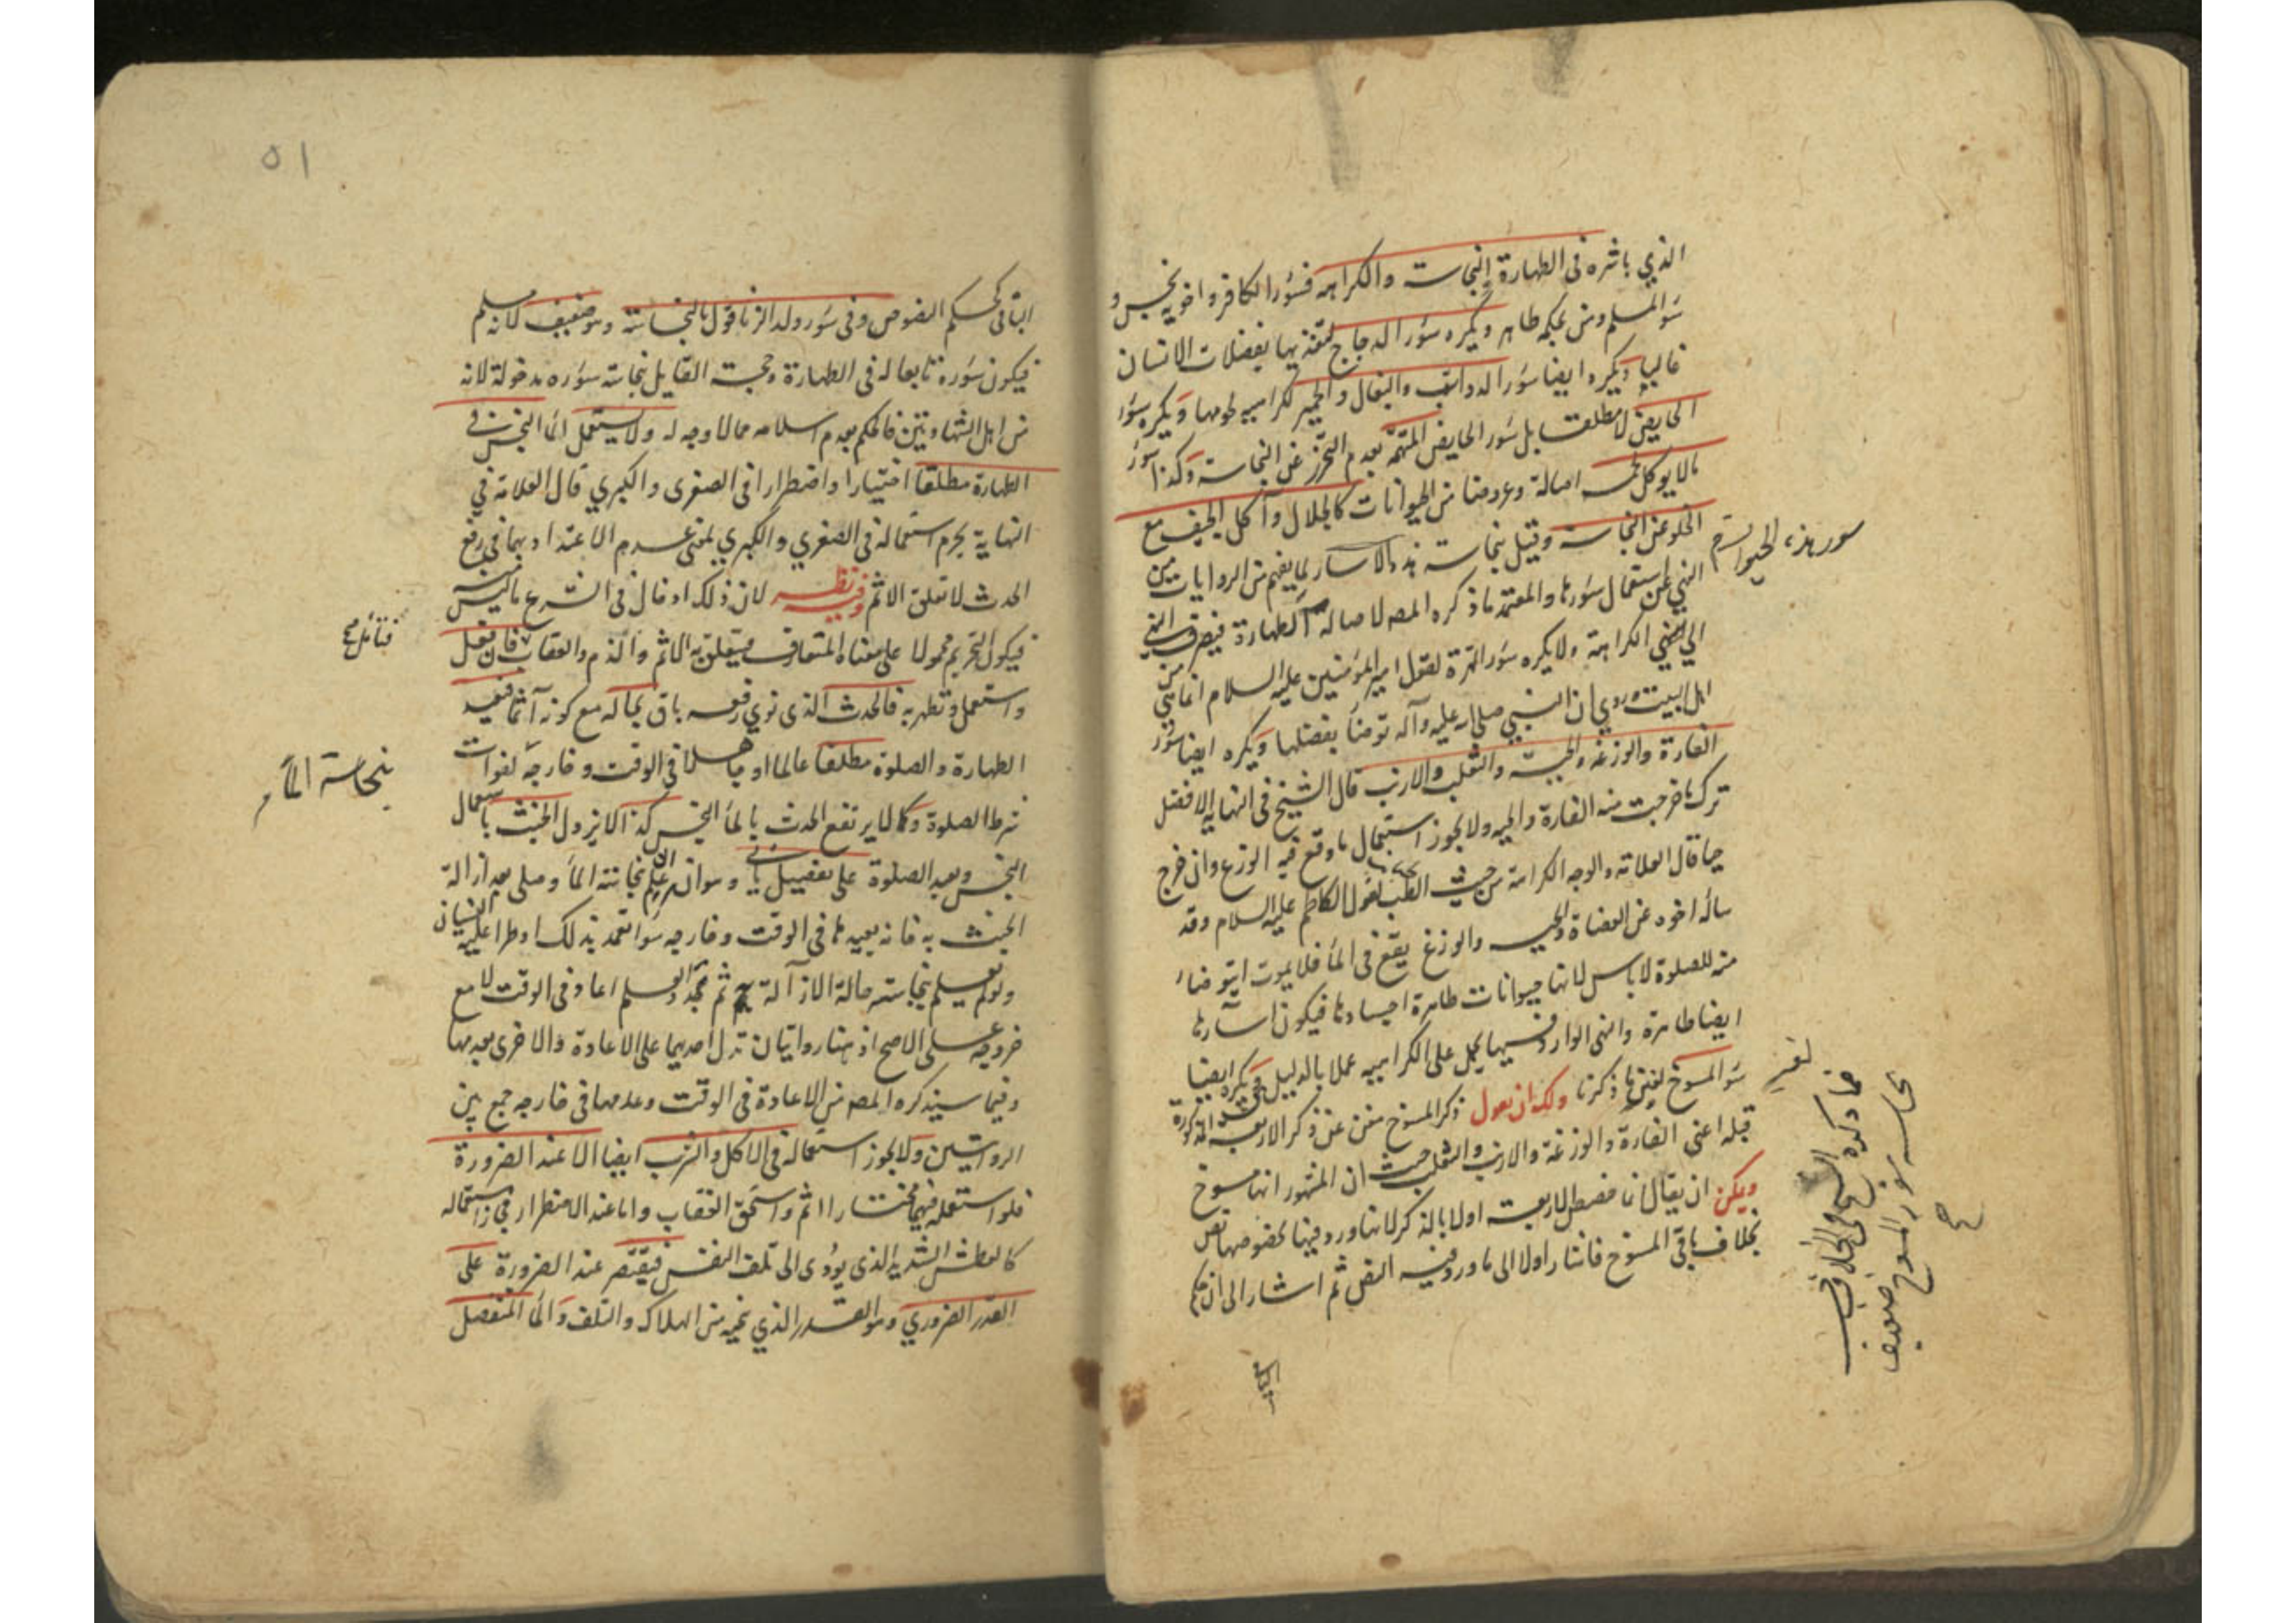 الذي باشره فى الطهارة والنجاسة والكراهه فسؤر الكافر واخويه نجس و
سؤر المسلم ومن بحكمه طاهر ويكره سؤر الدجاج لتغذيها بفضلات الانسان
غالبا ويكره ايضا سؤر الدواب والبغال والحمير لكراهيه لحومها ويكره سؤر
الحايض لا مطلقا بل سؤر الحايض المتهمة بعدم التحرز عن النجاسة وكذا سؤر
ما لا يوكل لحمه اصالة وعروضا من الحيوانات كالجلال وآكل الجيف مع
الخلو عن النجاسة وقيل بنجاسة هذه الاسار لما يفهم من الروايات من
النهي عن استعمال سؤرها والمعتمد ما ذكره المصه لاصالة الطهارة فيصرف النهي
الي معني الكراهة ولا يكره سؤر الهرة لقول امير المؤمنين عليه السلام انما هي من
اهل البيت وروي ان النبي صلى الله عليه وآله توضأ بفضلها ويكره ايضا سؤر
الفارة والوزغه والحية والثعلب والارنب قال الشيخ فى النهايه الافضل
ترك ما خرجت منه الفارة والحيه ولا يجوز استعمال ما وقع فيه الوزغ وان خرج
حيا قال العلامة والوجه الكراهة من حيث الطب لقول الكاظم عليه السلام وقد
سأله اخوه عن العضاة والحيه والوزغ يقع فى الماء فلا يموت ايتوضاء
منه للصلوة لا باس لانها حيوانات طاهرة اجسادها فيكون اسآرها
ايضا طاهرة والنهى الوارد فيها يحمل على الكراهيه عملا بالدليل ويكره ايضا
سؤر المسوخ لغير ما ذكرنا ولك ان تقول ذكر المسوخ مغن عن ذكر الاربعه المذكورة
قبله اعنى الفارة والوزغة والارنب والثعلب حيث ان المشهور انها مسوخ
ويمكن ان يقال انما خصص الاربعة اولا بالذكر لانها ورد فيها بخصوصها نص
بخلاف باقى المسوخ فاشار اولا الى ما ورد فيه النص ثم اشار الى ان حكم
الباقى
سور هذه الحيوان
فما ذكره الشيخ فى الخلاف
نجاسه سور المسوخ ضعيف
٥١
الباقى كحكم المنصوص وفى سؤر ولد الزنا قول بالنجاسة وهو ضعيف لانه مسلم
فيكون سؤره تابعا له فى الطهارة وحجت القايل بنجاسة سؤره مدخولة لانه
من اهل الشهادتين فالحكم بعدم اسلامه مما لا وجه له ولا يستعمل الماء النجس فى
الطهارة مطلقا اختيارا واضطرارا فى الصغرى والكبري قال العلامة فى
النهاية يحرم استعماله فى الصغري والكبري بمعنى عدم الاعتداد بهما فى رفع
الحدث لا تعلق الاثم وفيه نظر لان ذلك ادخال فى الشرع ما ليس منه
فيكون التحريم محمولا على معناه المتعارف فيتعلق به الاثم والذم والعقاب فان فعل
واستعمل وتطهر به فالحدث الذى نوي رفعه باق بحاله مع كونه آثما فيعيد
الطهارة والصلوة مطلقا عالما او جاهلا فى الوقت وخارجه لفوات
شرط الصلوة وكما لا يرتفع الحدث بالماء النجس كذا لا يزول الخبث باستعمال
النجس ويعيد الصلوة على تفصيل ياتى وهو ان علم نجاسته الماء وصلى بعد ازالة
الخبث به فانه يعيدها فى الوقت وخارجه سواء تعمد بذلك او طرا عليه النسيان
ولو لم يعلم بنجاسته حالة الازالة ثم تجدد العلم اعاد فى الوقت لا مع
خروجه على الاصح اذ هنا روايتان تدل احديهما على الاعادة والاخرى بعدمها
وفيما سيذكره المصه من الاعادة فى الوقت وعدمها فى خارجه جمع بين
الروايتين ولا يجوز استعماله فى الاكل والشرب ايضا الا عند الضرورة
فلو استعمله فيهما مختارا اثم واستحق العقاب واما عند الاضطرار فيجوز استعماله
كالعطش الشديد الذى يؤدى الى تلف النفس فيقتصر عند الضرورة على
القدر الضروري وهو القدر الذي ينجيه من الهلاك والتلف والماء المنفصل
فتأمل
نجاسة الماء